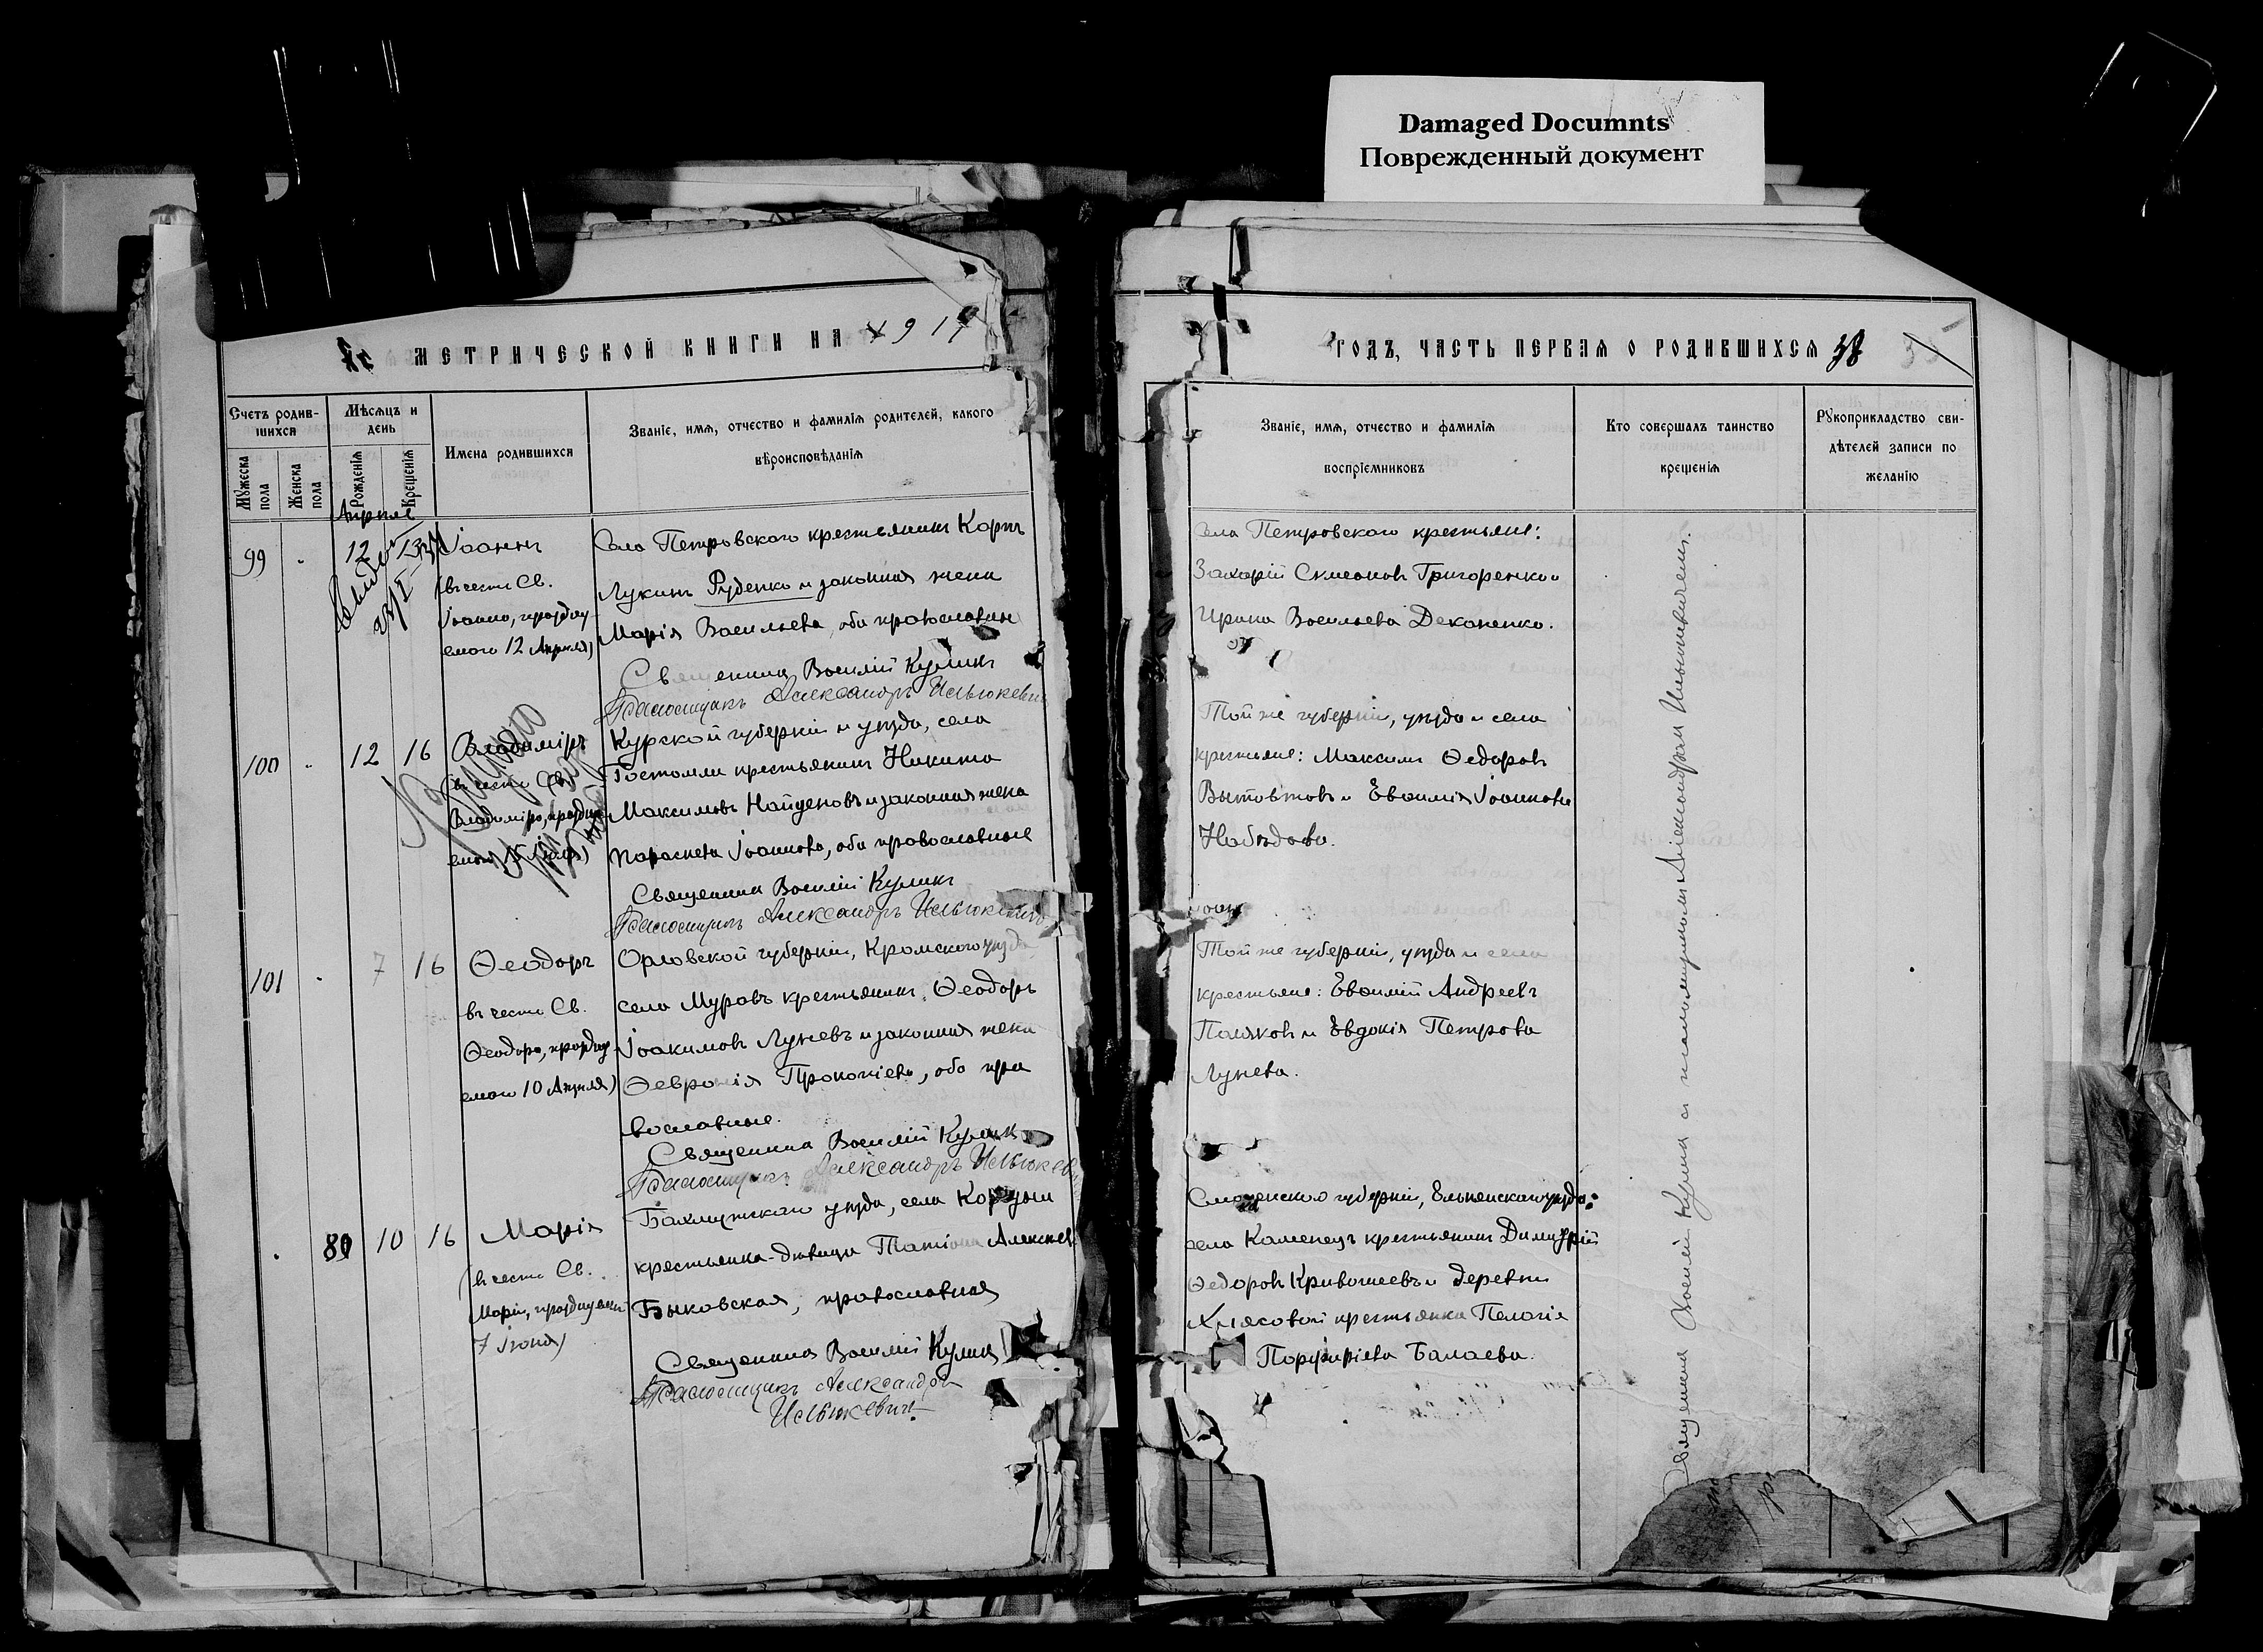 Damaged Documnts
Поврежденный документ
МЕТРИЧЕСКОЙ КНИГИ НА 191
ГОДЪ, ЧАСТЬ ПЕРВАЯ О РОДИВШИХСЯ 38
Счетъ родив-
шихся
Мужеска
пола
Женска
пола
Мѣсяцъ и
день
Рожденія
Крещенія
Имена родившихся
Званіе, имя, отчество и фамилія родителей, какого
вѣроисповѣданія
Званіе, имя, отчество и фамилія
воспріемниковъ
Кто совершалъ таинство
крещенія
Рукоприкладство сви-
дѣтелей записи по
желанію
Апрѣль
99
12
13
Іоаннъ
(въ честь Св.
Іоанна, праздну-
емаго 12 Апрѣля)
Села Петровскаго крестьянинъ Карпъ
Лукинъ Руденко и законная жена
Марія Васильева, оба православные
Священникъ Василій Куликъ
Псаломщикъ Александръ
Села Петровскаго крестьяне:
Захарій Симеоновъ Григоренко и
Ирина Васильева Деканенко.
100
12
16
Владиміръ
(въ честь Св.
Владиміра, праздну-
емаго 15 Іюля)
Курской губерніи и уѣзда, села
Гостомли крестьянинъ Никита
Максимовъ Найденовъ и законная жена
Параскева Іоаннова, оба православные
Священникъ Василій Куликъ
Псаломщикъ Александръ
Той же губерніи, уѣзда и села
крестьяне: Максимъ Ѳедоровъ
и Евѳимія Іоаннова
101
7
16
Ѳеодоръ
въ честь Св.
Ѳеодора, праздну-
емаго 10 Апрѣля)
Орловской губерніи, Кромскаго уѣзда
села Муровъ крестьянинъ Ѳеодоръ
Іоакимовъ Луневъ и законная жена
Ѳевронія Прокопіева, оба пра
вославные.
Священникъ Василій Куликъ
Псаломщикъ Александръ
Той же губерніи, уѣзда и села
крестьяне: Евѳимій Андреевъ
Поляковъ и Евдокія Петрова
Лунева.
10
16
Марія
(въ честь Св.
Маріи, празднуемой
7 Іюня)
Бахмутскаго уѣзда, села
крестьянка-дѣвица Татіана Алексѣев
Быковская, православная
Священникъ Василій Куликъ
Псаломщикъ Александръ
Смоленской губерніи, Ельнинскаго уѣзда:
села Каменецъ крестьянинъ Димитрій
Ѳедоровъ Кривошеевъ и деревни
крестьянка Пелагія
Порфиріева Балаева.
Священникъ Василій Куликъ съ псаломщикомъ Александромъ